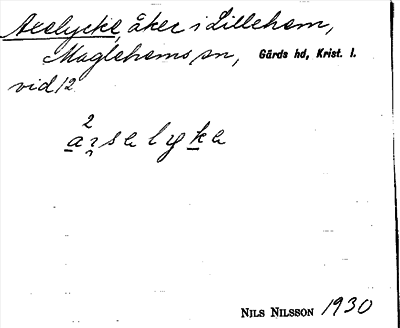 Aselycke, åker i Lillehem,
Maglehems sn, Gärds hd, Krist. l.
vid 12
2
arselyka
NILS NILSSON 1930